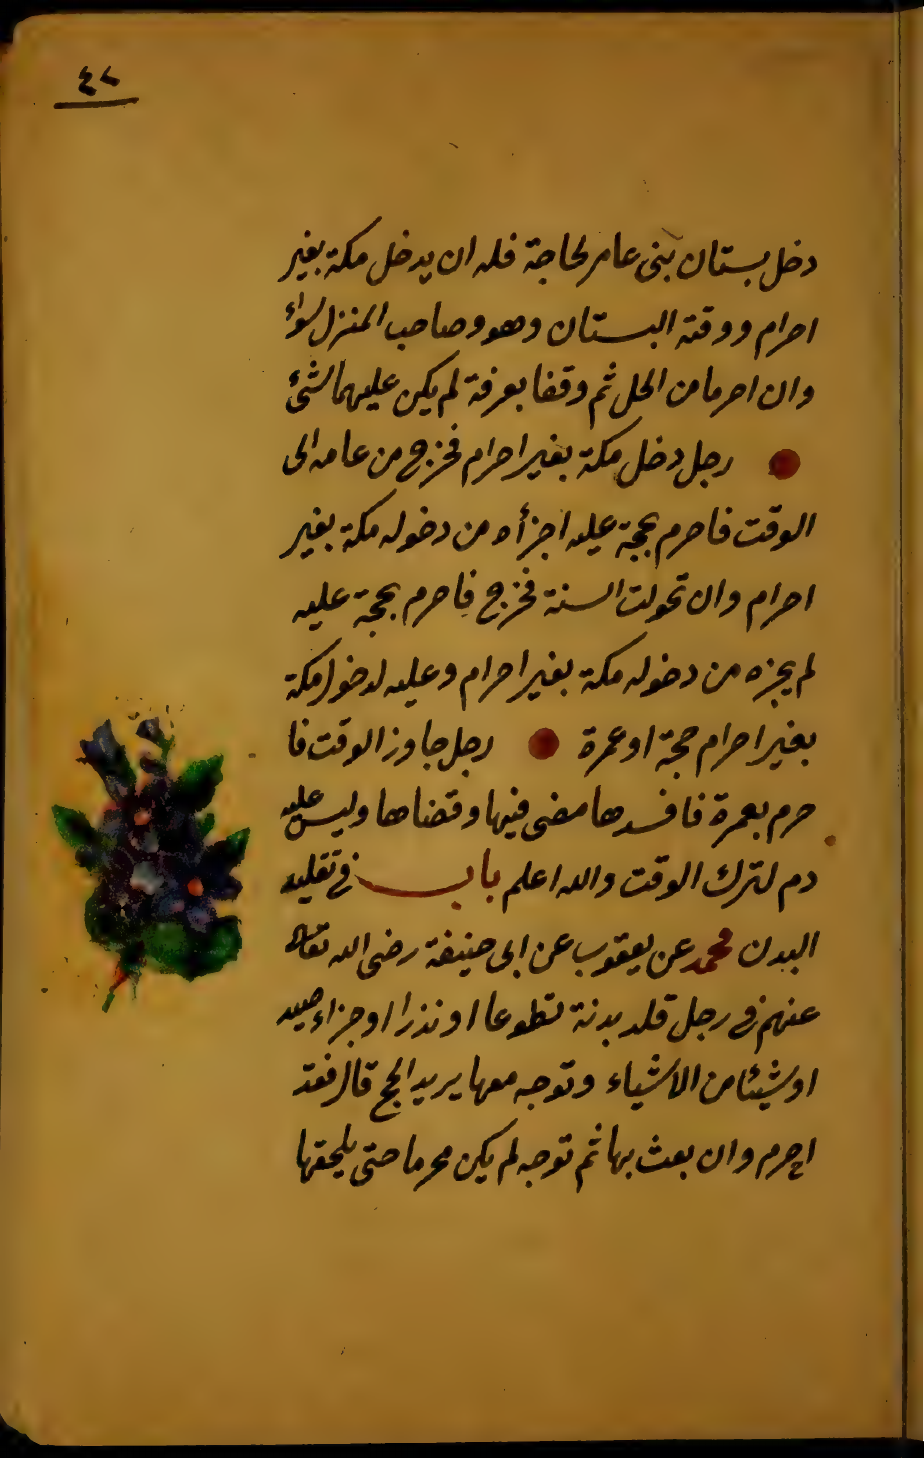 ٤٢
دخل بستان بنى عامر لحاجة فله ان يدخل مكة بغير
احرام ووقته البستان وهو وصاحب المنزل سواء
وان احرما من الحل ثم وقفا بعرفة لم يكن عليهما شئ
رجل دخل مكة بغير احرام فخرج من عامه الى
الوقت فاحرم بحجة عليه اجزأه من دخوله مكة بغير
احرام وان تحولت السنة فخرج فاحرم بحجة عليه
لم يجزه من دخوله مكة بغير احرام وعليه لدخول مكة
بغير احرام حجة او عمرة رجل جاوز الوقت فا
حرم بعمرة فافسدها مضى فيها وقضاها وليس عليه
دم لترك الوقت والله اعلم باب فى تقليد
البدن محمد عن يعقوب عن ابى حنيفة رضى الله تعالى
عنهم فى رجل قلد بدنة تطوعا او نذرا او جزاء صيد
او شيئا من الاشياء وتوجه معها يريد الحج قال فقد
احرم وان بعث بها ثم توجه لم يكن محرما حتى يلحقها